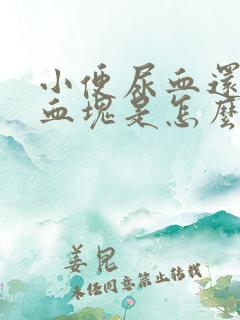 小便尿血還
血塊是怎麽
姜昆
未经同意禁止转载